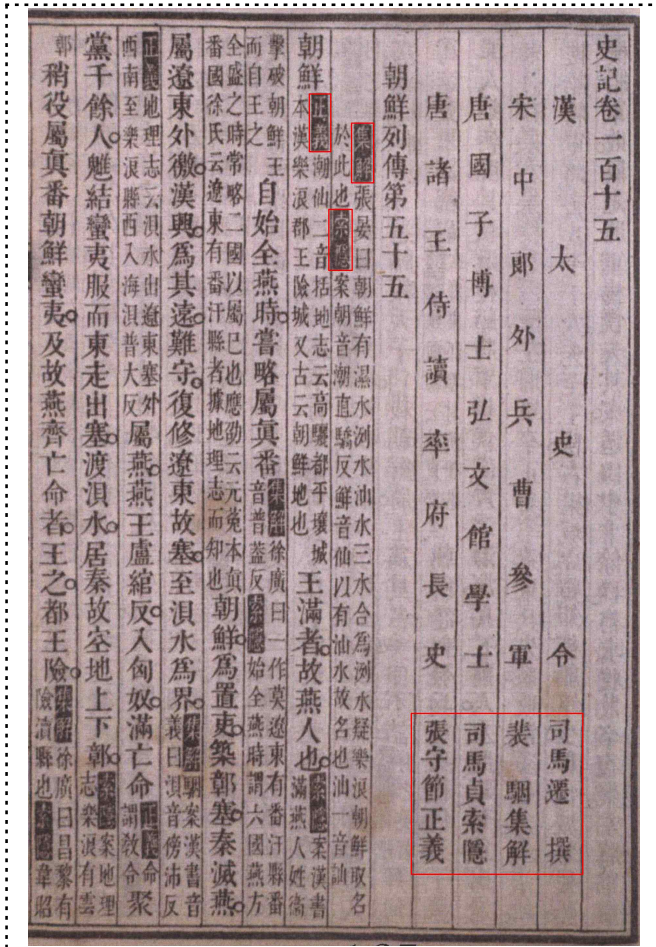 史記卷一百十五
漢太史令司馬遷撰
宋中郎外兵曹參軍裴駰集解
唐國子博士弘文館學士司馬貞索隱
唐諸王侍讀率府長史張守節正義
朝鮮列傳第五十五
集解張晏曰朝鮮有濕水洌水汕水三水合爲洌水疑樂浪朝鮮取名
於此也索隱案朝音潮直驕反鮮音仙以有汕水故名也汕一音訕
朝鮮正義潮仙二音括地志云高驪都平壤城本漢樂浪郡王險城又古云朝鮮地也王滿者。故燕人也。索隱案漢書滿燕人姓衞
擊破朝鮮王而自王之自始全燕時。嘗略屬眞番集解徐廣曰一作莫遼東有番汗縣番音普葢反索隱始全燕時謂六國燕方
全盛之時常略二國以屬已也應劭云元菟本眞番國徐氏云遼東有番汗縣者據地理志而知也朝鮮。爲置吏。築鄣塞。秦滅燕。
屬遼東外徼。漢興。爲其遠難守。復修遼東故塞。至浿水爲界。集解駰案漢書音義曰浿音傍沛反
正義地理志云浿水出遼東塞外西南至樂浪縣西入海浿普大反屬燕。燕王盧綰反。入匈奴。滿亡命正義命謂敎令聚
黨千餘人。魋結蠻夷服而東走出塞。渡浿水。居秦故空地上下鄣。索隱案地理志樂浪有雲
鄣稍役屬眞番朝鮮蠻夷。及故燕齊亡命者。王之。都王險。集解徐廣曰昌黎有險瀆縣也索隱韋昭